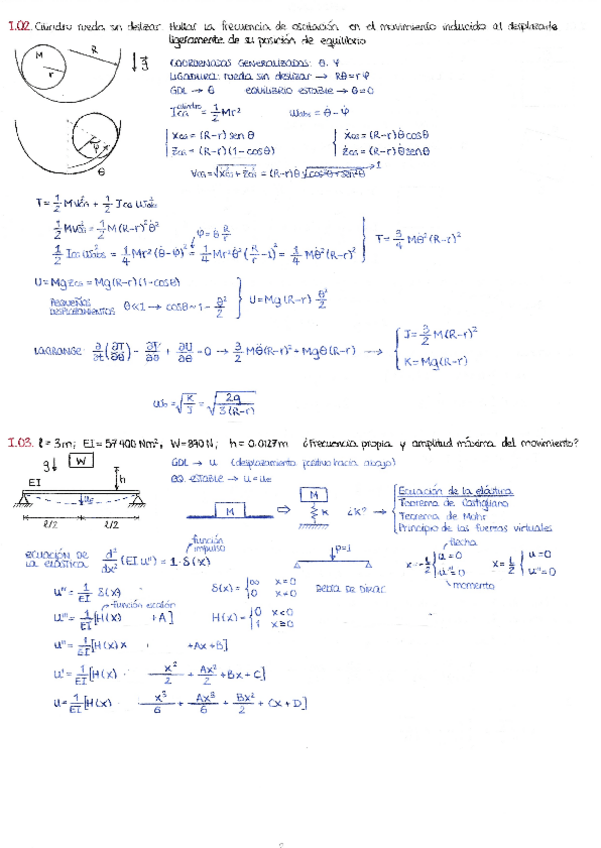 I.02. Cilindro rueda sin deslizar. Hallar la frecuencia de oscilación en el movimiento inducido al desplazarle
ligeramente de su posición de equilibrio
M
R
r
g
COORDENADAS GENERALIZADAS: θ, φ
LIGADURA: rueda sin deslizar → Rθ = rφ
GDL → θ EQUILIBRIO ESTABLE → θ=0
I_CG^cilindro = 1/2 Mr² ω_abs = θ̇ - φ̇
x_CG = (R-r) sen θ
z_CG = (R-r)(1-cosθ)
ẋ_CG = (R-r) θ̇ cosθ
ż_CG = (R-r) θ̇ senθ
v_CG = √(ẋ²_CG + ż²_CG) = (R-r) θ̇ √(cos²θ+sen²θ) → 1
φ
θ
T = 1/2 M v²_CG + 1/2 I_CG ω²_abs
1/2 M v²_CG = 1/2 M (R-r)² θ̇²
φ̇ = θ̇ R/r
1/2 I_CG ω²_abs = 1/4 Mr² (θ̇-φ̇)² = 1/4 Mr² θ̇² (R/r - 1)² = 1/4 Mθ̇² (R-r)²
T = 3/4 Mθ̇² (R-r)²
U = Mg z_CG = Mg (R-r)(1-cosθ)
PEQUEÑOS DESPLAZAMIENTOS θ≪1 → cosθ ~ 1 - θ²/2
U = Mg (R-r) θ²/2
LAGRANGE: ∂/∂t (∂T/∂θ̇) - ∂T/∂θ + ∂U/∂θ = 0 → 3/2 Mθ̈(R-r)² + Mgθ(R-r) →
J = 3/2 M(R-r)²
K = Mg(R-r)
ω₀ = √(K/J) = √(2g/3(R-r))
I.03. ℓ = 3m; EI = 57400 Nm², W = 890 N; h = 0.0127m ¿Frecuencia propia y amplitud máxima del movimiento?
g
W
h
EI
ℓ/2
ℓ/2
GDL → u (desplazamiento positivo hacia abajo)
EQ. ESTABLE → u = u_e
M
M
K
¿K?
Ecuación de la elástica
Teorema de Castigliano
Teorema de Mohr
Principio de las fuerzas virtuales
ECUACIÓN DE LA ELÁSTICA d²/dx² (EI u'') = 1·δ(x)
función impulso
P=1
flecha
x = -ℓ/2 u=0 u''=0
momento
x = ℓ/2 u=0 u''=0
u'''' = 1/EI δ(x)
δ(x) = ∞ x=0
0 x≠0
DELTA DE DIRAC
función escalón
u''' = 1/EI [H(x) +A]
H(x) = 0 x<0
1 x≥0
u'' = 1/EI [H(x) x +Ax +B]
u' = 1/EI [H(x) · x²/2 + Ax²/2 + Bx + C]
u = 1/EI [H(x) · x³/6 + Ax³/6 + Bx²/2 + Cx + D]